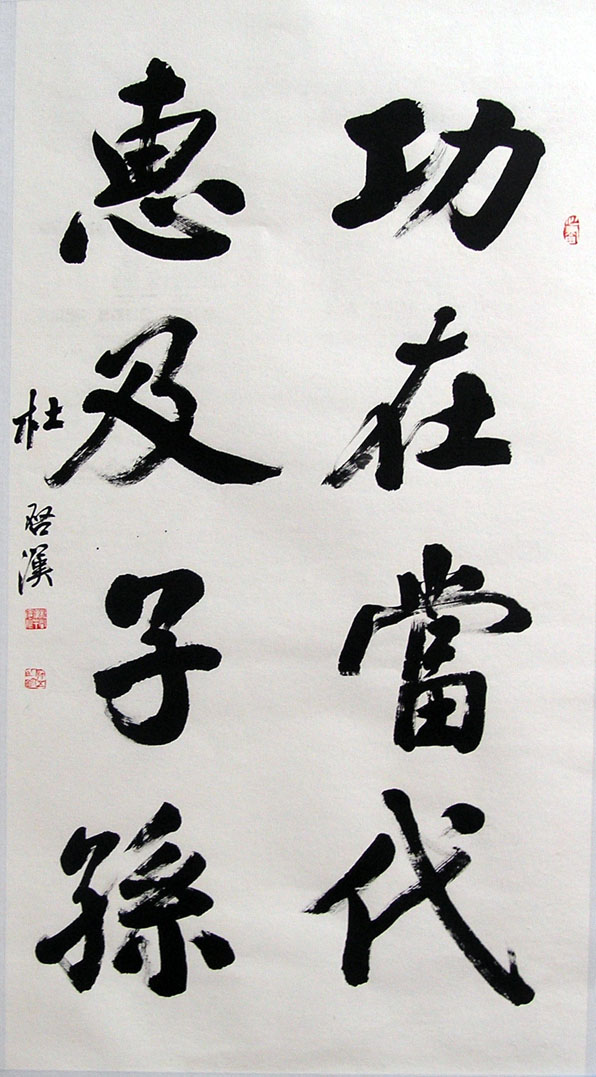 功在當代
惠及子孫
杜啓漢